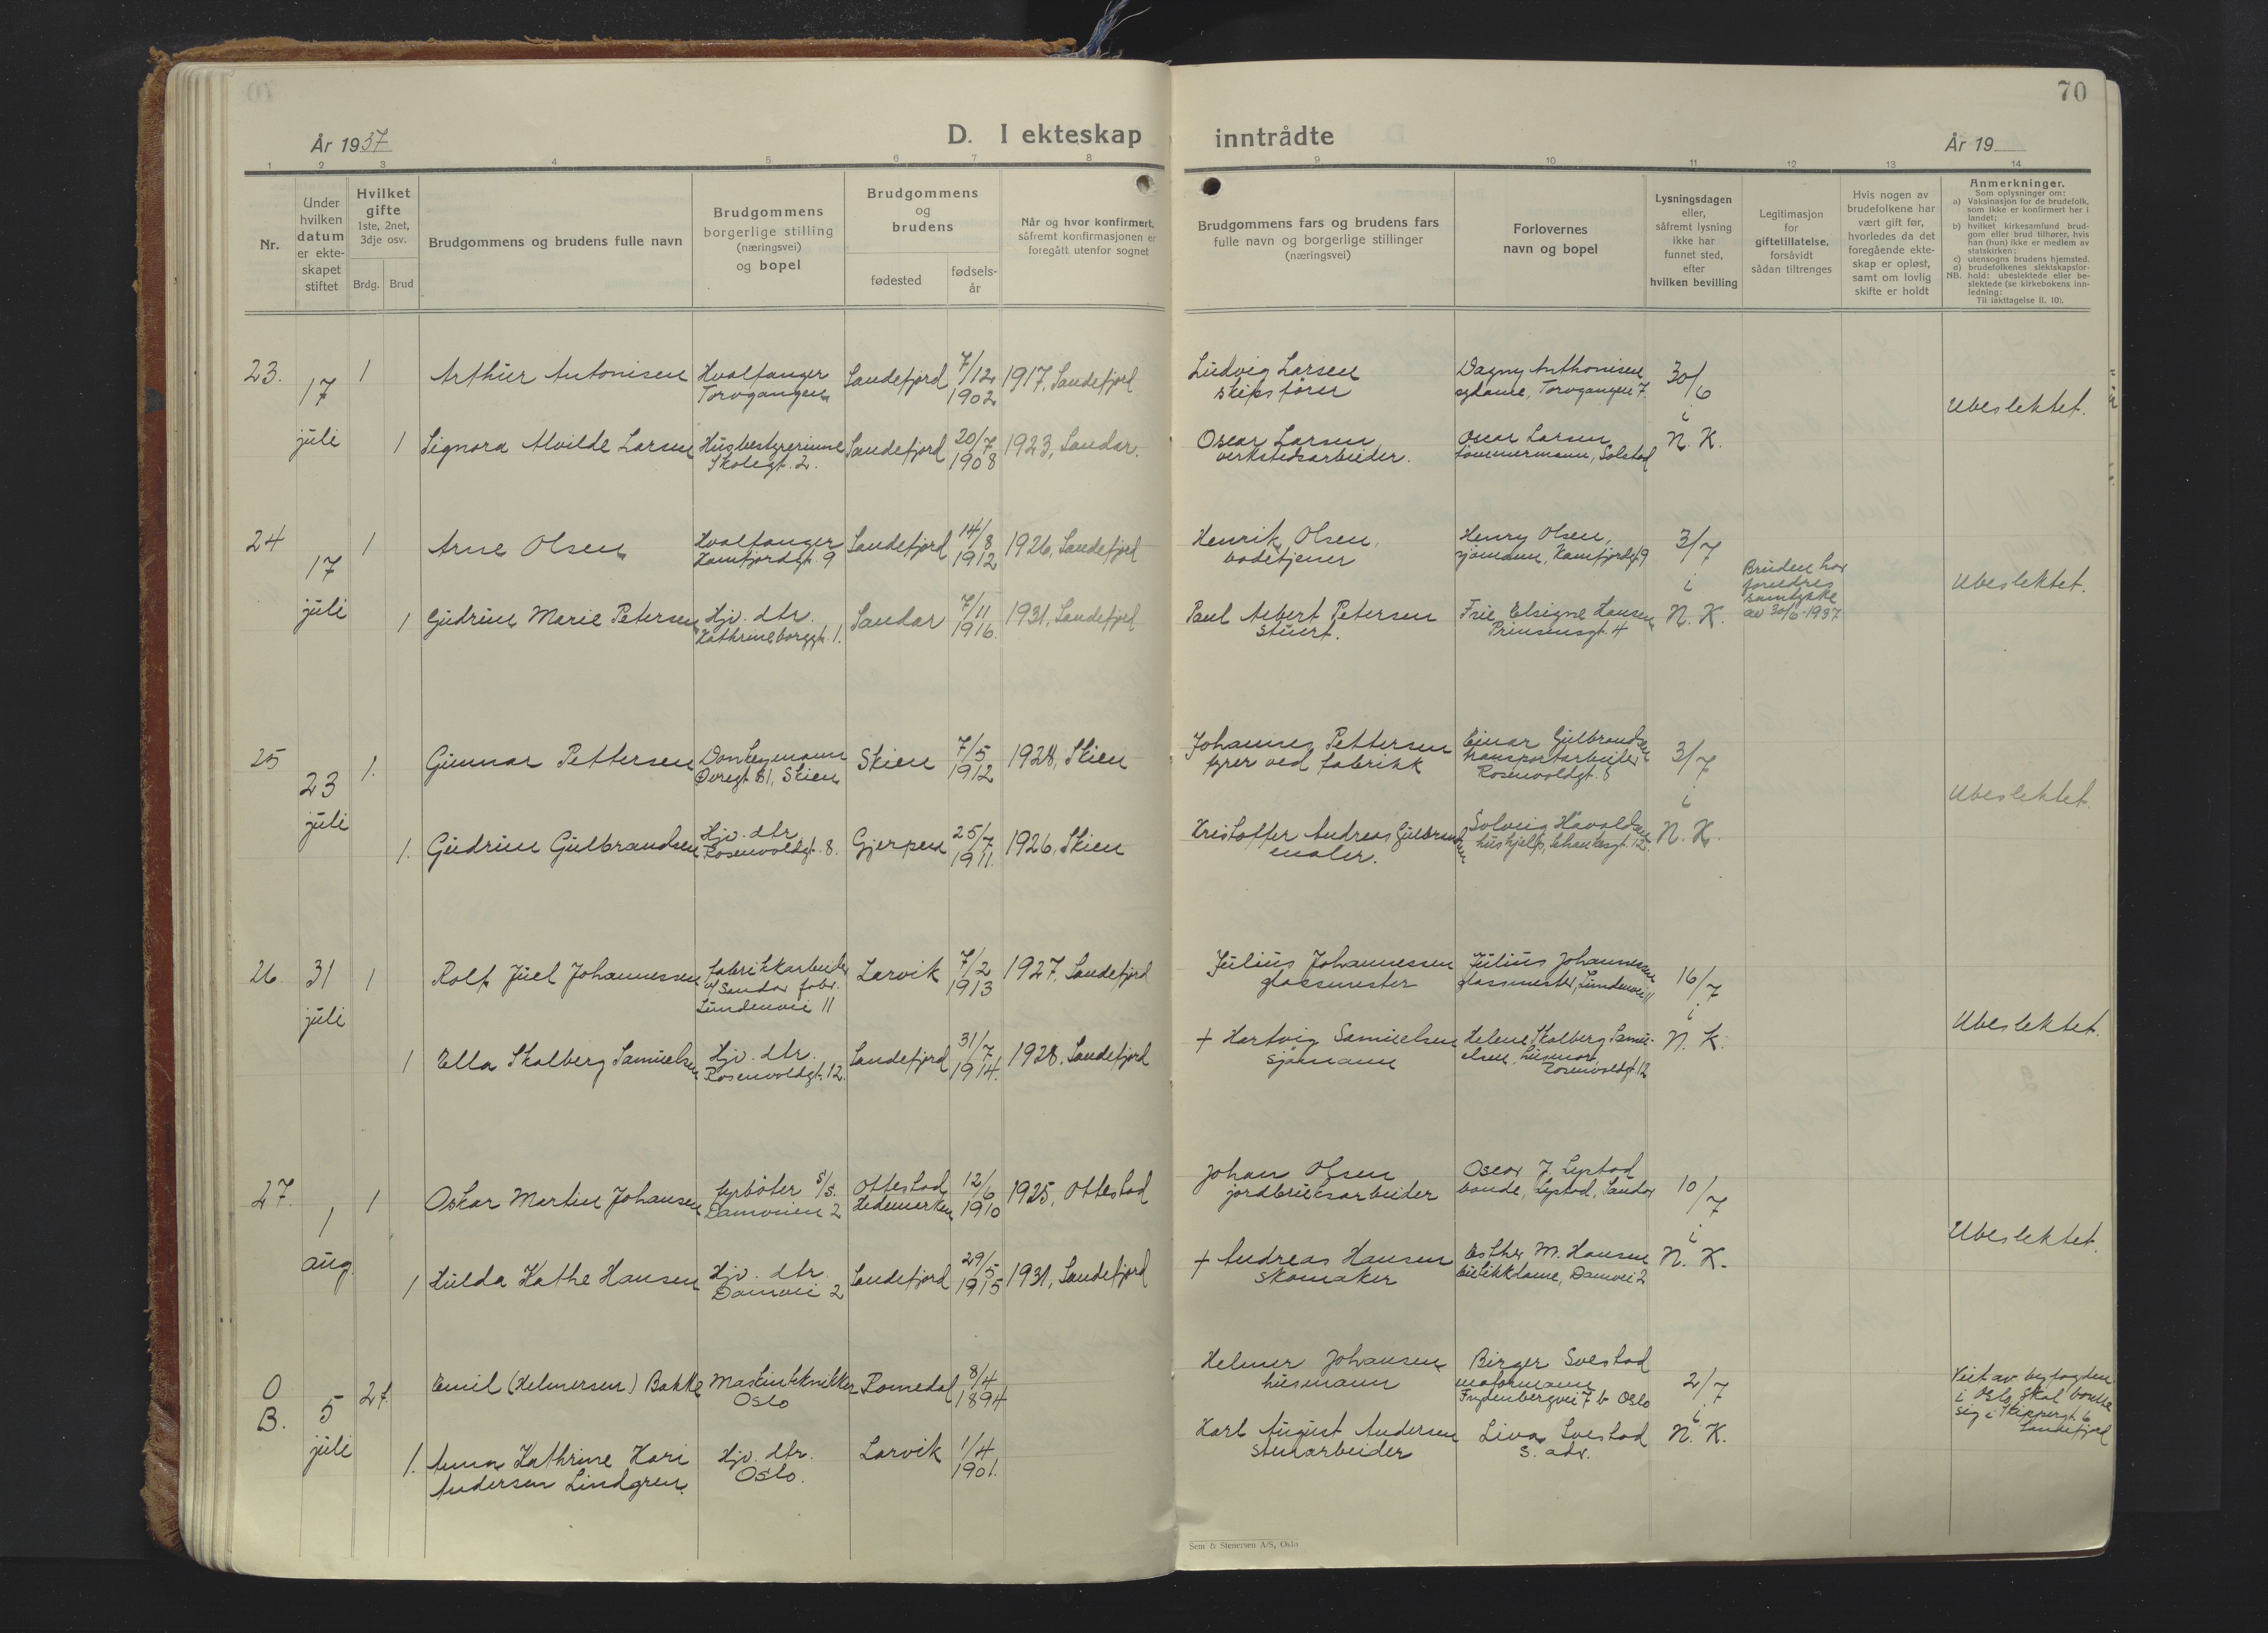 70
År 1937
D. I ekteskap inntrådte
År 19
1 2 3 4 5 6 7 8 9 10 11 12 13 14
Nr.
Under hvilken datum er ekte-skapet stiftet
Hvilket gifte
1ste, 2net, 3dje osv.
Brdg. Brud
Brudgommens og brudens fulle navn
Brudgommens borgerlige stilling (næringsvei) og bopel
Brudgommens og brudens
fødested
fødsels-år
Når og hvor konfirmert, såfremt konfirmasjonen er foregått utenfor sognet
Brudgommens fars og brudens fars fulle navn og borgerlige stillinger (næringsvei)
Forlovernes navn og bopel
Lysningsdagen eller, såfremt lysning ikke har funnet sted, efter hvilken bevilling
Legitimasjon for giftetillatelse, forsåvidt sådan tiltrenges
Hvis nogen av brudefolkene har vært gift før, hvorledes da det foregående ekte-skap er opløst, samt om lovlig skifte er holdt
Anmerkninger.
Som oplysninger om:
a) Vaksinasjon for de brudefolk, som ikke er konfirmert her i landet;
b) hvilket kirkesamfund brud-gom eller brud tilhører, hvis han (hun) ikke er medlem av statskirken;
c) utensogns brudens hjemsted.
d) brudefolkenes slektskapsfor-hold: ubeslektede eller be-slektede (se kirkebokens inn-ledning:
NB. Til iakttagelse II. 10).
23. 17 juli
1 Arthur Antonisen Hvalfanger Torvgangen Sandefjord 7/12 1902 1917, Sandefjord
Ludvig Larsen skipsfører
Dagny Anthonisen sydame, Torvgangen 7
30/6 i N. K.
1 Signora Alvilde Larsen Husbestyrerinne Skolegt. 2. Sandefjord 20/7 1908 1923, Sandar.
Oscar Larsen verkstedsarbeider.
Oscar Larsen tømmermann, Solstad
Ubeslektet.
24 17 juli
1 Arne Olsen Hvalfanger Kamfjordgt. 9 Sandefjord 14/8 1912 1926, Sandefjord
Henrik Olsen, badetjener
Henry Olsen, sjømann, Kamfjordgt 9
3/7 i N. K.
Bruden har foreldres samtykke av 30/6-1937
1 Gudrun Marie Petersen Hjv. dtr. Kathrineborggt. 1. Sandar 7/11 1916. 1931, Sandefjord
Paul Albert Petersen stuert.
Fru Elsigne Hansen Prinsensgt. 4
Ubeslektet.
25 23 juli
1. Gunnar Pettersen Donkeymann Øvregt. 81, Skien Skien 7/5 1912 1928, Skien
Johannes Pettersen fyrer ved fabrikk
Einar Gulbrandsen transportarbeider Rosenvoldgt. 8
3/7 i N. K.
1. Gudrun Gulbrandsen Hjv. dtr. Rosenvoldgt. 8. Gjerpen 25/7 1911. 1926, Skien
Kristoffer Andreas Gulbrandsen maler.
Solveig Havoldsen hushjelp,
Ubeslektet.
26. 31 juli
1 Rolf Juel Johannessen fabrikkarbeider v/ Sandar fabr. Lundenvei 11 Larvik 7/2 1913 1927, Sandefjord
Julius Johannessen glassmester
Julius Johannessen glassmester, Lundenvei 11
16/7 i N. K.
1 Ella Skalberg Samuelsen Hjv. dtr. Rosenvoldgt. 12. Sandefjord 31/7 1914. 1928, Sandefjord
+ Hartvig Samuelsen sjømann
Helene Skalberg Samu-elsen, husmor, Rosenvoldgt. 12
Ubeslektet.
27. 1 aug.
1 Oskar Martin Johansen fyrbøter S/S. Damveien 2 Ottestad Hedemarken 12/6 1910 1925, Ottestad
Johan Olsen jordbruksarbeider
Oscar J. Lystad bonde, Lystad, Sandar
10/7 i N. K.
1 Hulda Kathe Hansen Hjv. dtr. Damvei 2 Sandefjord 29/5 1915 1931, Sandefjord
+ Andreas Hansen skomaker
Esther M. Hansen butikkdame, Damvei 2
Ubeslektet.
O B. 5 juli
2t. Emil (Helmersen) Bakke Maskintekniker Oslo Romedal 8/4 1894
Helmer Johansen husmann
Birger Solstad Frydenbergvei 7 b Oslo
2/7 i N. K.
1. Anna Kathrine Kari Andersen Lindgren. Hjv. dtr. Oslo. Larvik 1/4 1901.
Karl August Andersen stenarbeider
Liva Solstad s. adr.
Viet av byfogden i Oslo, skal bosette sig i Skippergt. 6 Sandefjord
Sem & Stenersen A/S, Oslo